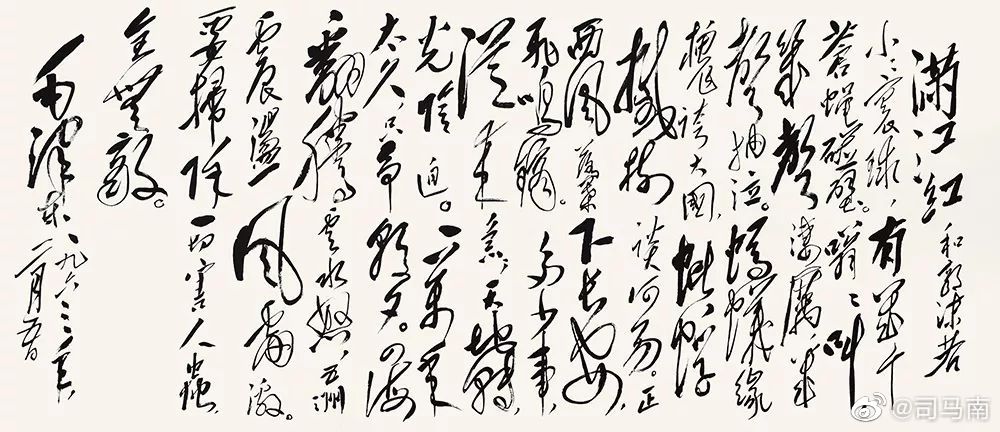 满江红 和郭沫若
小小寰球,有几个
苍蝇碰壁。嗡嗡叫,
几声凄厉,几
声抽泣。蚂蚁缘
槐夸大国,蚍蜉
撼树谈何易。正
西风落叶下长安,
飞鸣镝。多少事,
从来急;天地转,
光阴迫。一万年
太久,只争朝夕。四海
翻腾云水怒,五洲
震荡风雷激。
要扫除一切害人虫,
全无敌。
毛泽东 一九六三年
二月五日
@司马南